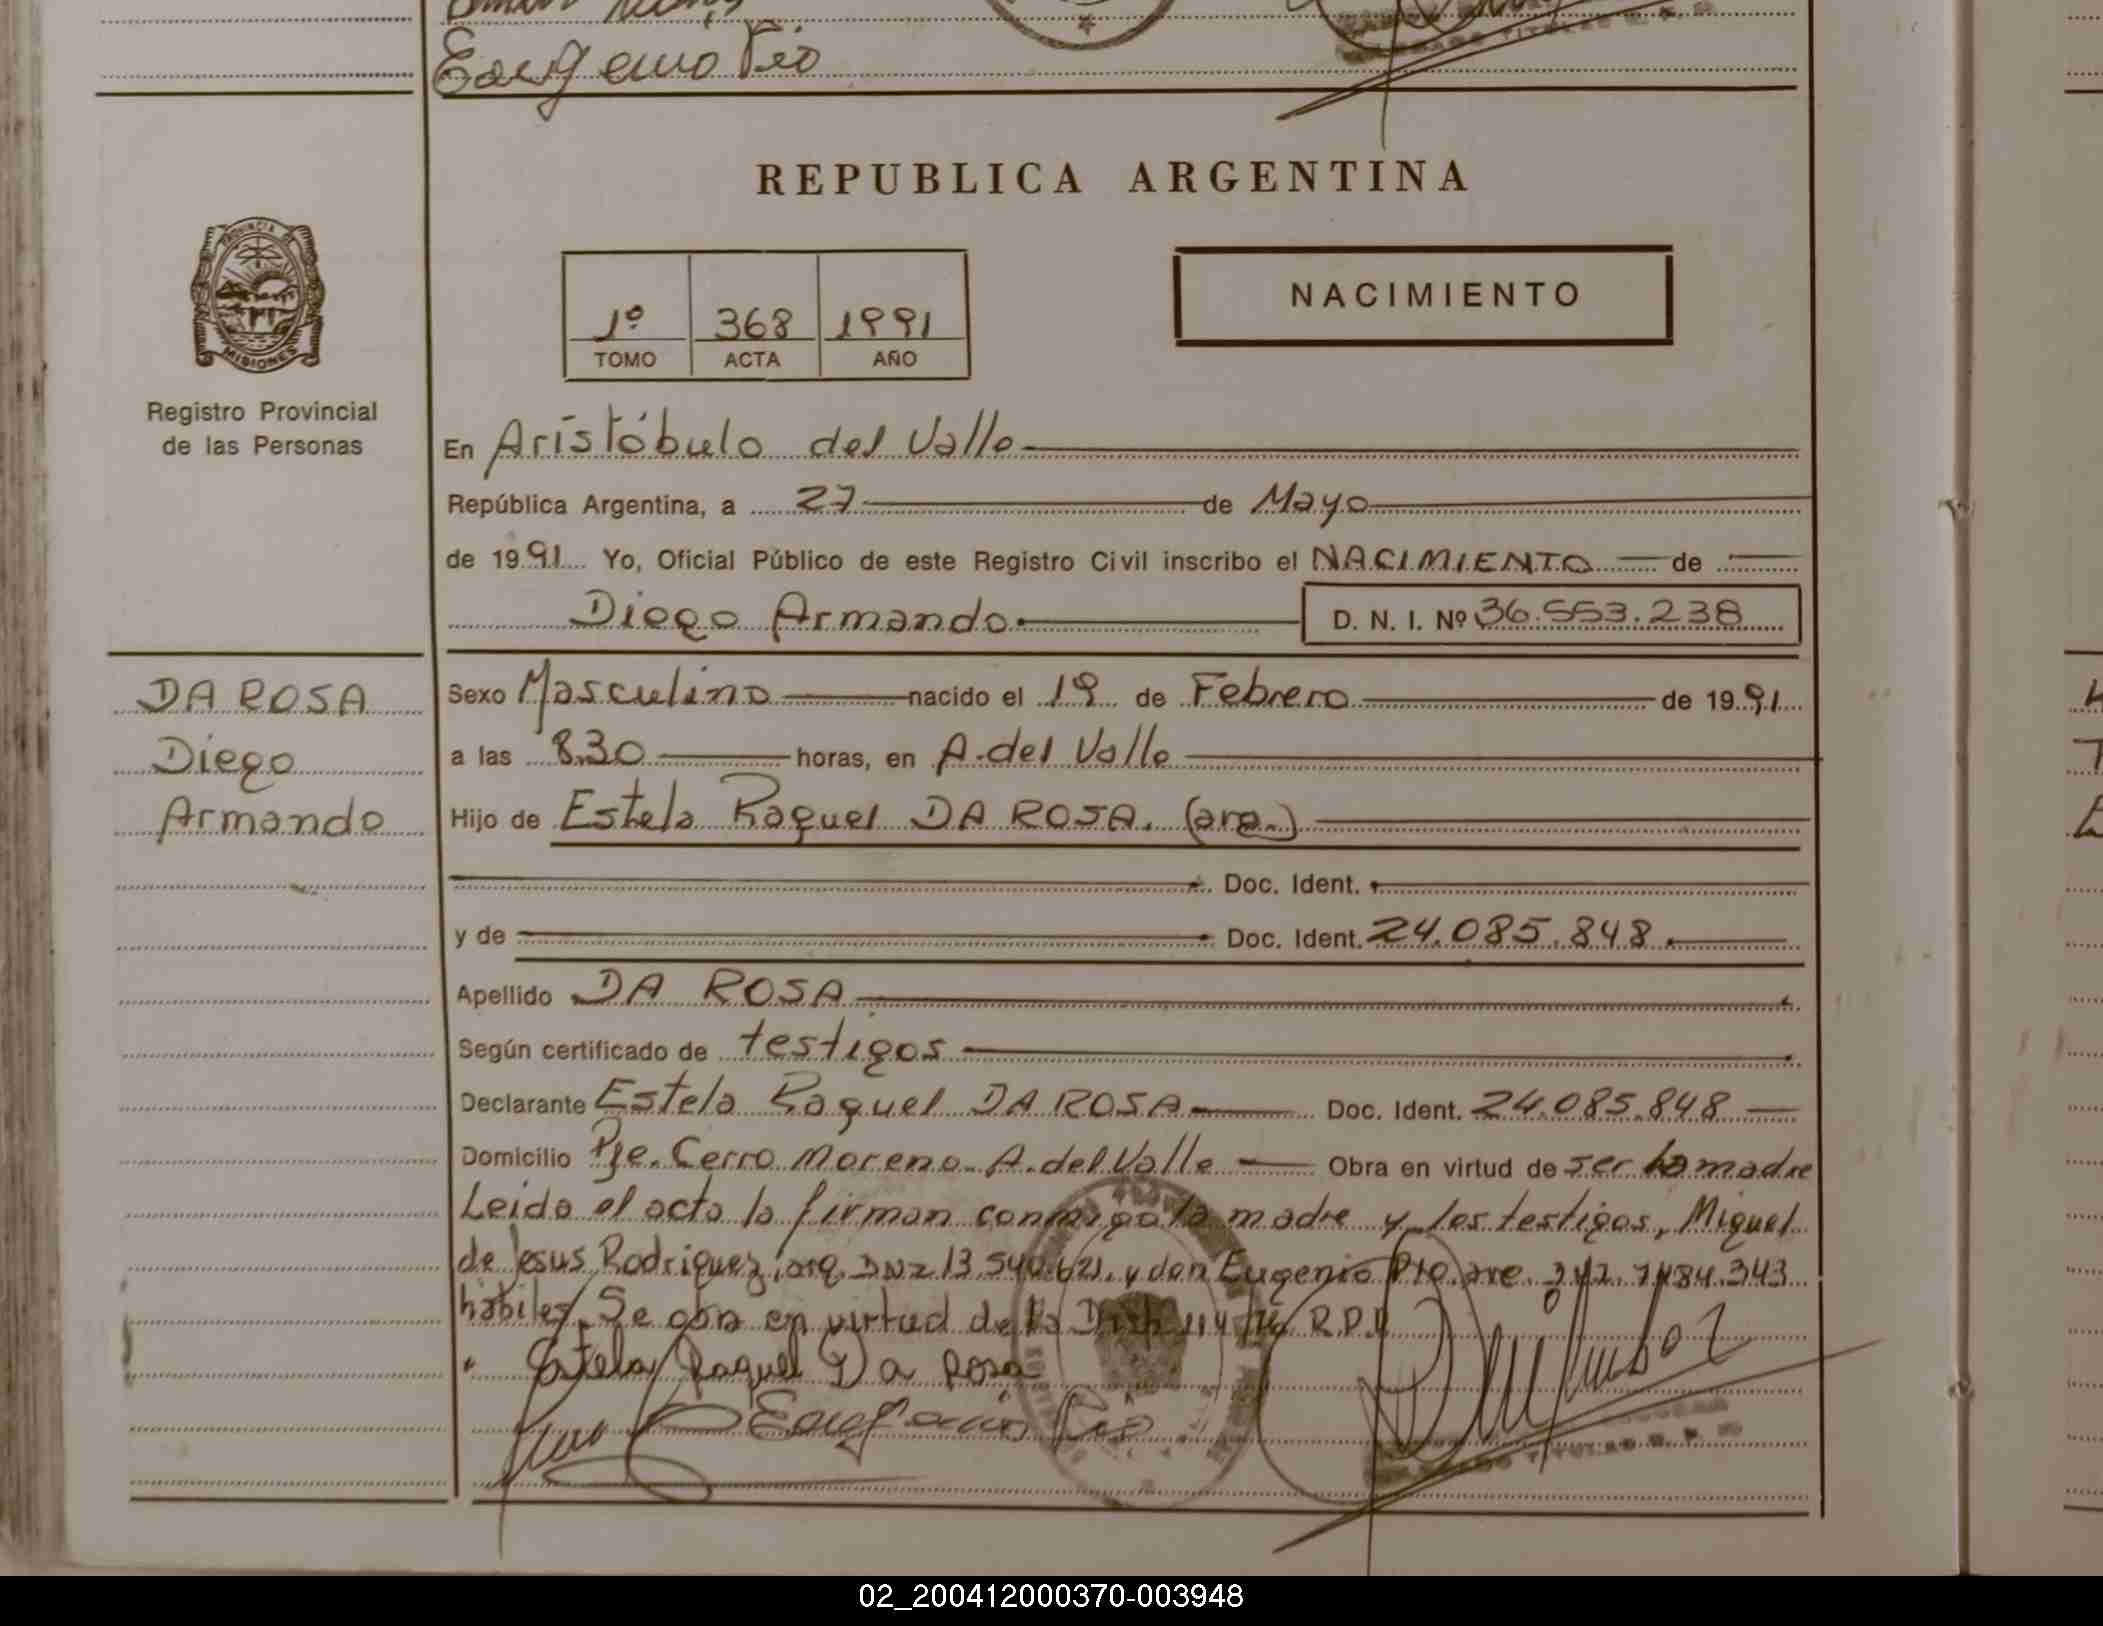 Eaugenio Pio
REPUBLICA ARGENTINA
PROVINCIA DE
MISIONES
Registro Provincial
de las Personas
1º 368 1991
TOMO ACTA AÑO
NACIMIENTO
En Aristóbulo del Valle
República Argentina, a 27 de Mayo
de 1991 Yo, Oficial Público de este Registro Civil inscribo el NACIMIENTO de
Diego Armando D. N. I. Nº 36.553.238
DA ROSA
Diego
Armando
Sexo Masculino nacido el 19 de Febrero de 1991
a las 8.30 horas, en A. del Valle
Hijo de Estela Raquel DA ROSA. (arg.)
Doc. Ident.
y de Doc. Ident. 24.085.848
Apellido DA ROSA
Según certificado de testigos
Declarante Estela Raquel DA ROSA Doc. Ident. 24.085.848
Domicilio Pje. Cerro Moreno. A. del Valle Obra en virtud de ser la madre
Leida el acta la firman conmigo la madre y los testigos, Miguel
de Jesus Rodriguez, arg. DNI 13.540.621. y don Eugenio Pio, arg. 7.484.343
habiles. Se obra en virtud de la 114/76 R.P.P
Estela Raquel Da Rosa
Eaugenio Pio
02_200412000370-003948